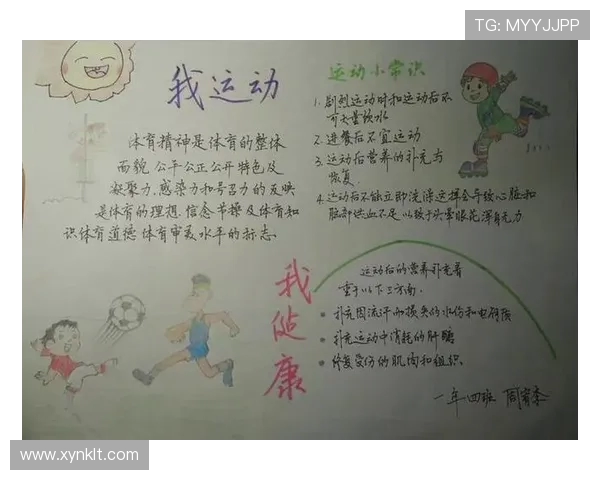 TG: MYYJJPP
我运动
体育精神是体育的整体
面貌 公平公正公开特色及
凝聚力.感染力和号召力的反映
是体育的理想.信念 节操及体育知
识体育道德 体育审美水平的标志.
运动小常识
1. 剧烈运动时和运动后不
可大量饮水
2. 进餐后不宜运动
3. 运动后营养的补充与
恢复.
4. 运动后不能立即洗澡这样会导致心脏和
脑部供血不足以致于头晕眼花浑身无力
我健康
运动后的营养补充着
重于以下三方面.
补充因流汗而损失的水份和电解质
补充运动中消耗的肝糖
修复受伤的肌肉和组织.
一年四班
www.xynklt.com